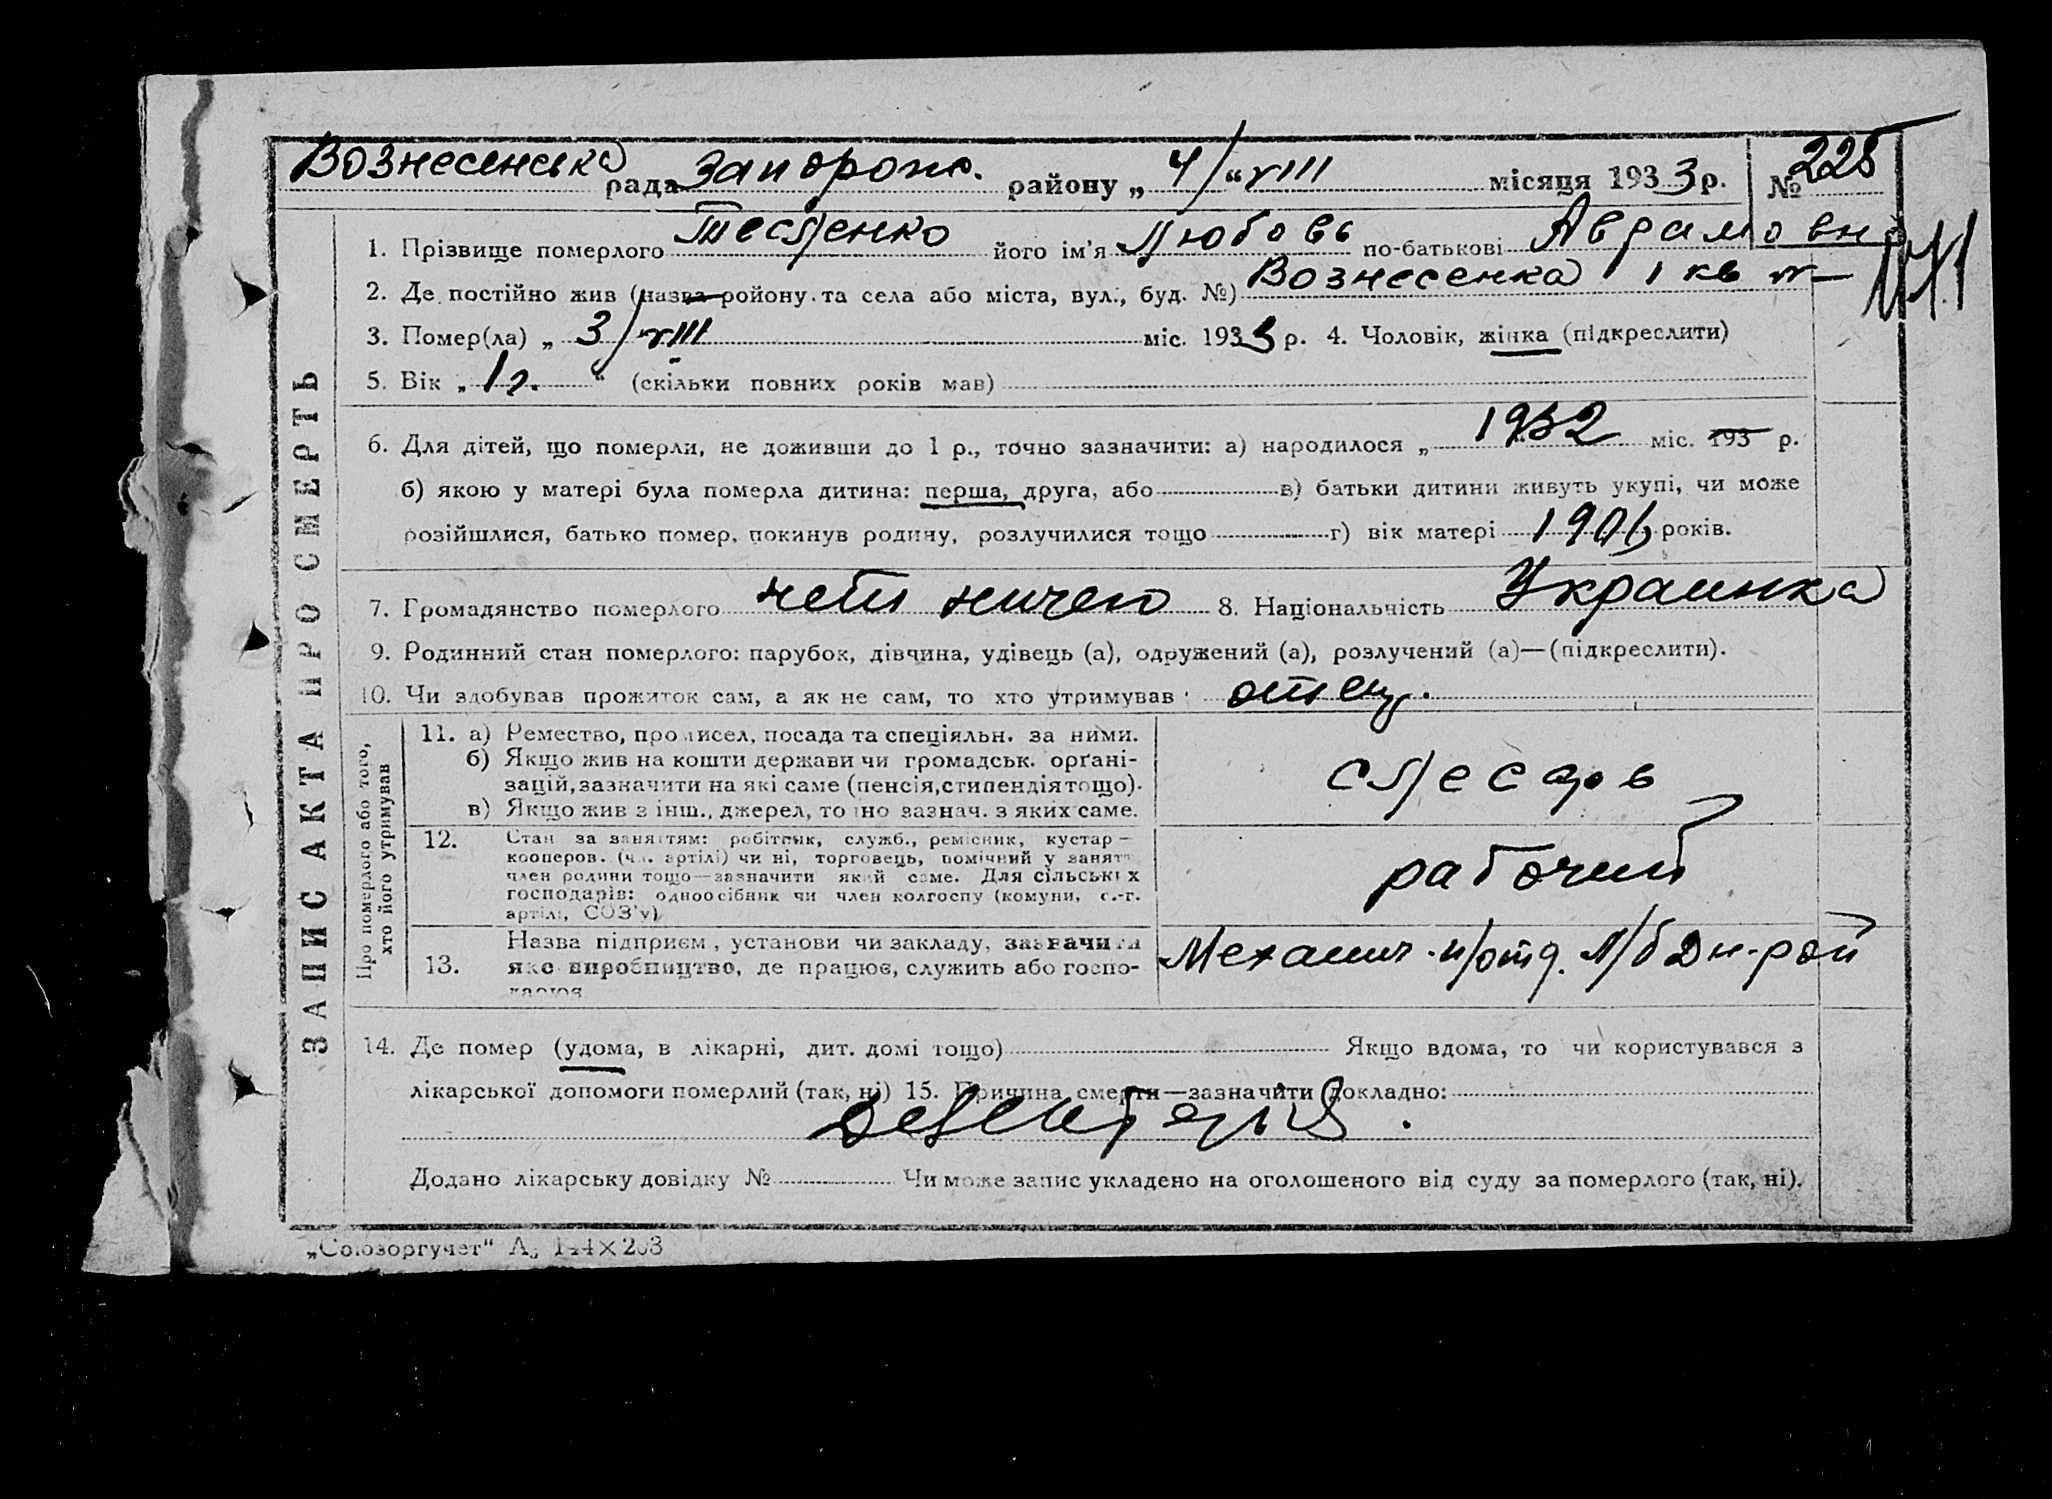 Вознесенська рада Запорож. району „ 4/“ VIII місяця 1933 р. № 228
ЗАПИС АКТА ПРО СМЕРТЬ
1. Прізвище померлого Тесленко його ім'я Любовь по-батькові Аврамовна
2. Де постійно жив (назва ройону та села або міста, вул., буд. №) Вознесенка 1 кв
3. Помер(ла) „ 3/VIII міс. 1933 р. 4. Чоловік, жінка (підкреслити)
5. Вік „ 1 г. “ (скільки повних років мав)
6. Для дітей, що померли, не доживши до 1 р., точно зазначити: а) народилося „ 1932 міс. 193 р.
б) якою у матері була померла дитина: перша, друга, або в) батьки дитини живуть укупі, чи може
розійшлися, батько помер, покинув родину, розлучилися тощо г) вік матері років.
7. Громадянство померлого 8. Національність Украинка
9. Родинний стан померлого: парубок, дівчина, удівець (а), одружений (а), розлучений (а)—(підкреслити).
10. Чи здобував прожиток сам, а як не сам, то хто утримував: отец.
Про померлого або того, хто його утримував
11. а) Ремество, промисел, посада та спеціяльн. за ними.
б) Якщо жив на кошти держави чи громадськ. орґані-
зацій, зазначити на які саме (пенсія, стипендія тощо).
в) Якщо жив з інш., джерел, точно зазнач. з яких саме.
слесарь
12. Стан за заняттям: робітник, служб., ремісник, кустар—
кооперов. (чл. артілі) чи ні, торговець, помічний у занятті
член родини тощо—зазначити який саме. Для сільських
господарів: одноосібник чи член колгоспу (комуни, с.-г.
артілі, СОЗ'у)
рабочий
13. Назва підприєм., установи чи закладу, зазначити
яке виробництво, де працює, служить або госпо-
дарює
Механич.
14. Де помер (удома, в лікарні, дит. домі тощо) Якщо вдома, то чи користувався з
лікарської допомоги померлий (так, ні) 15. Причина смерти—зазначити докладно:
Дезентерия.
Додано лікарську довідку № Чи може запис укладено на оголошеного від суду за померлого (так, ні).
„Союзоргучет“